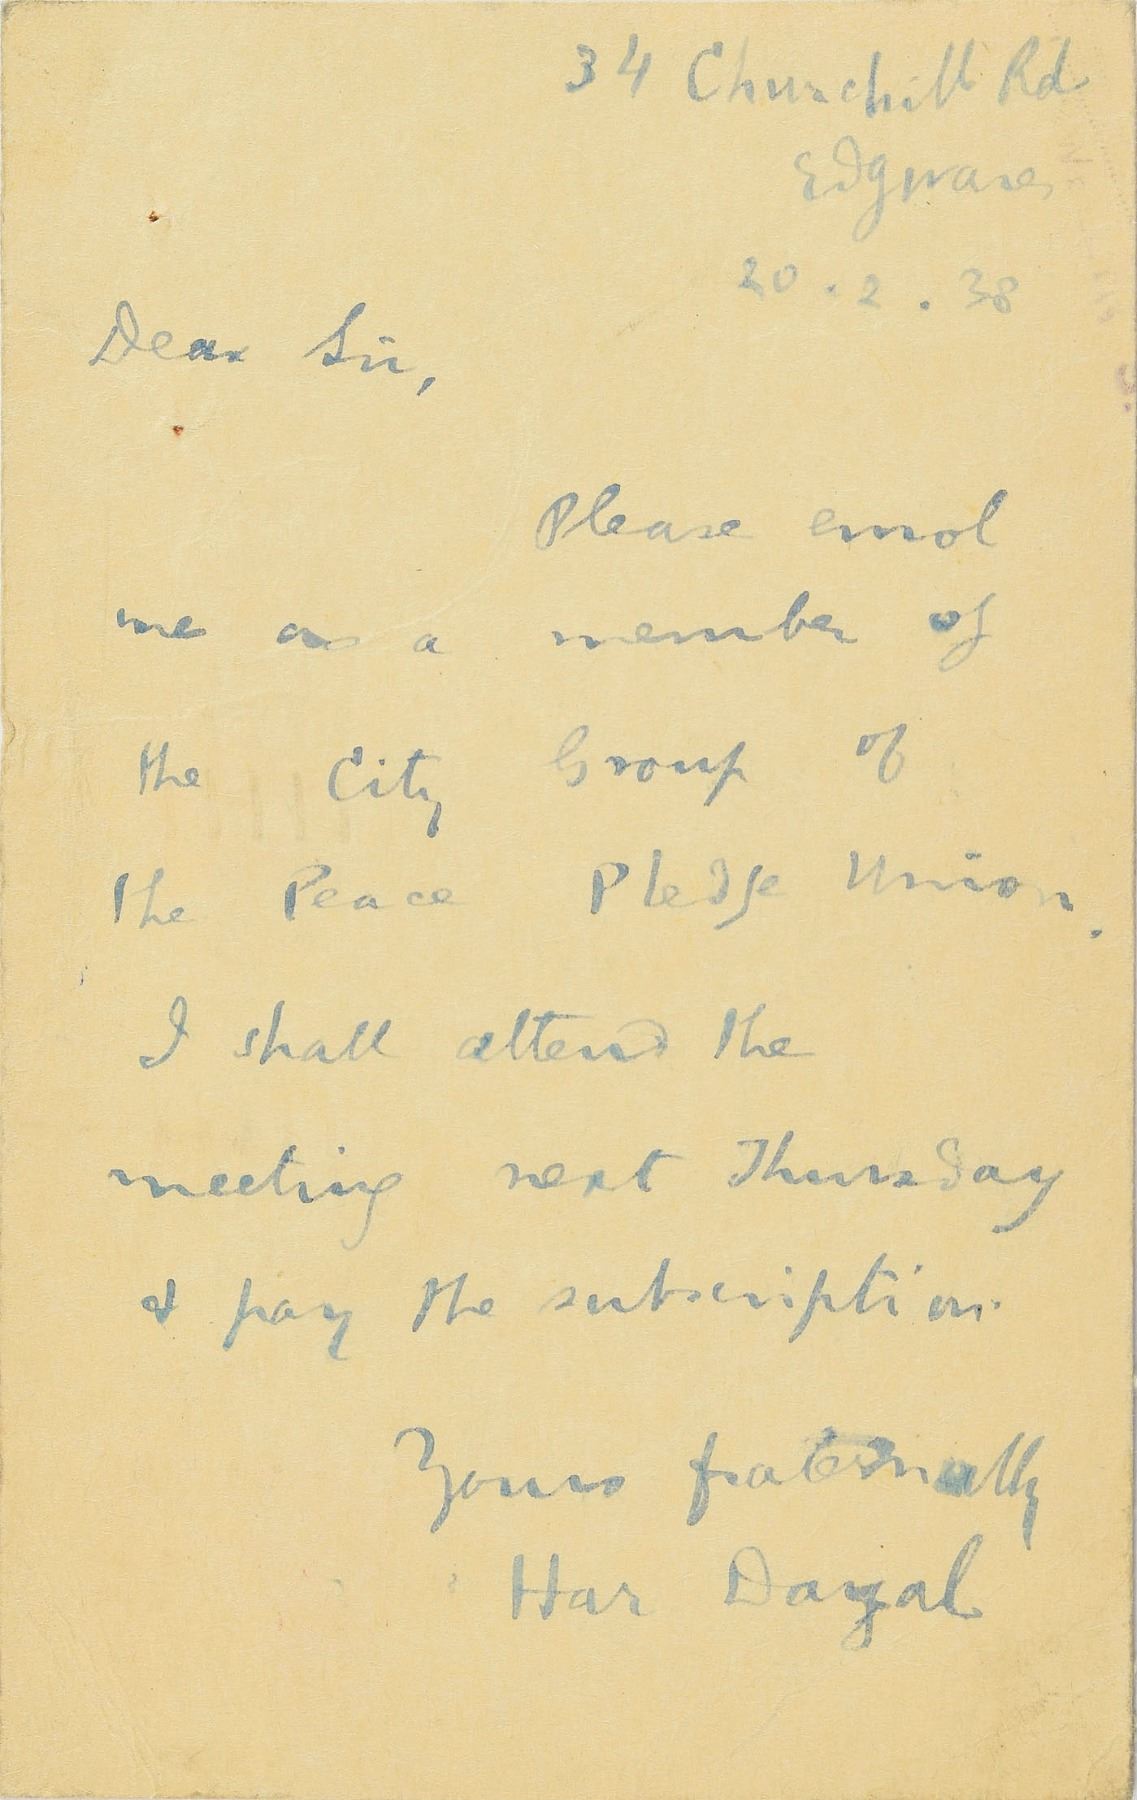 34 Churchill Rd
Edgware
20.2.38
Dear Sir,
Please enrol
me as a member of
the City Group of
the Peace Pledge Union.
I shall attend the
meeting next Thursday
& pay the subscription.
Yours fraternally
Har Dayal